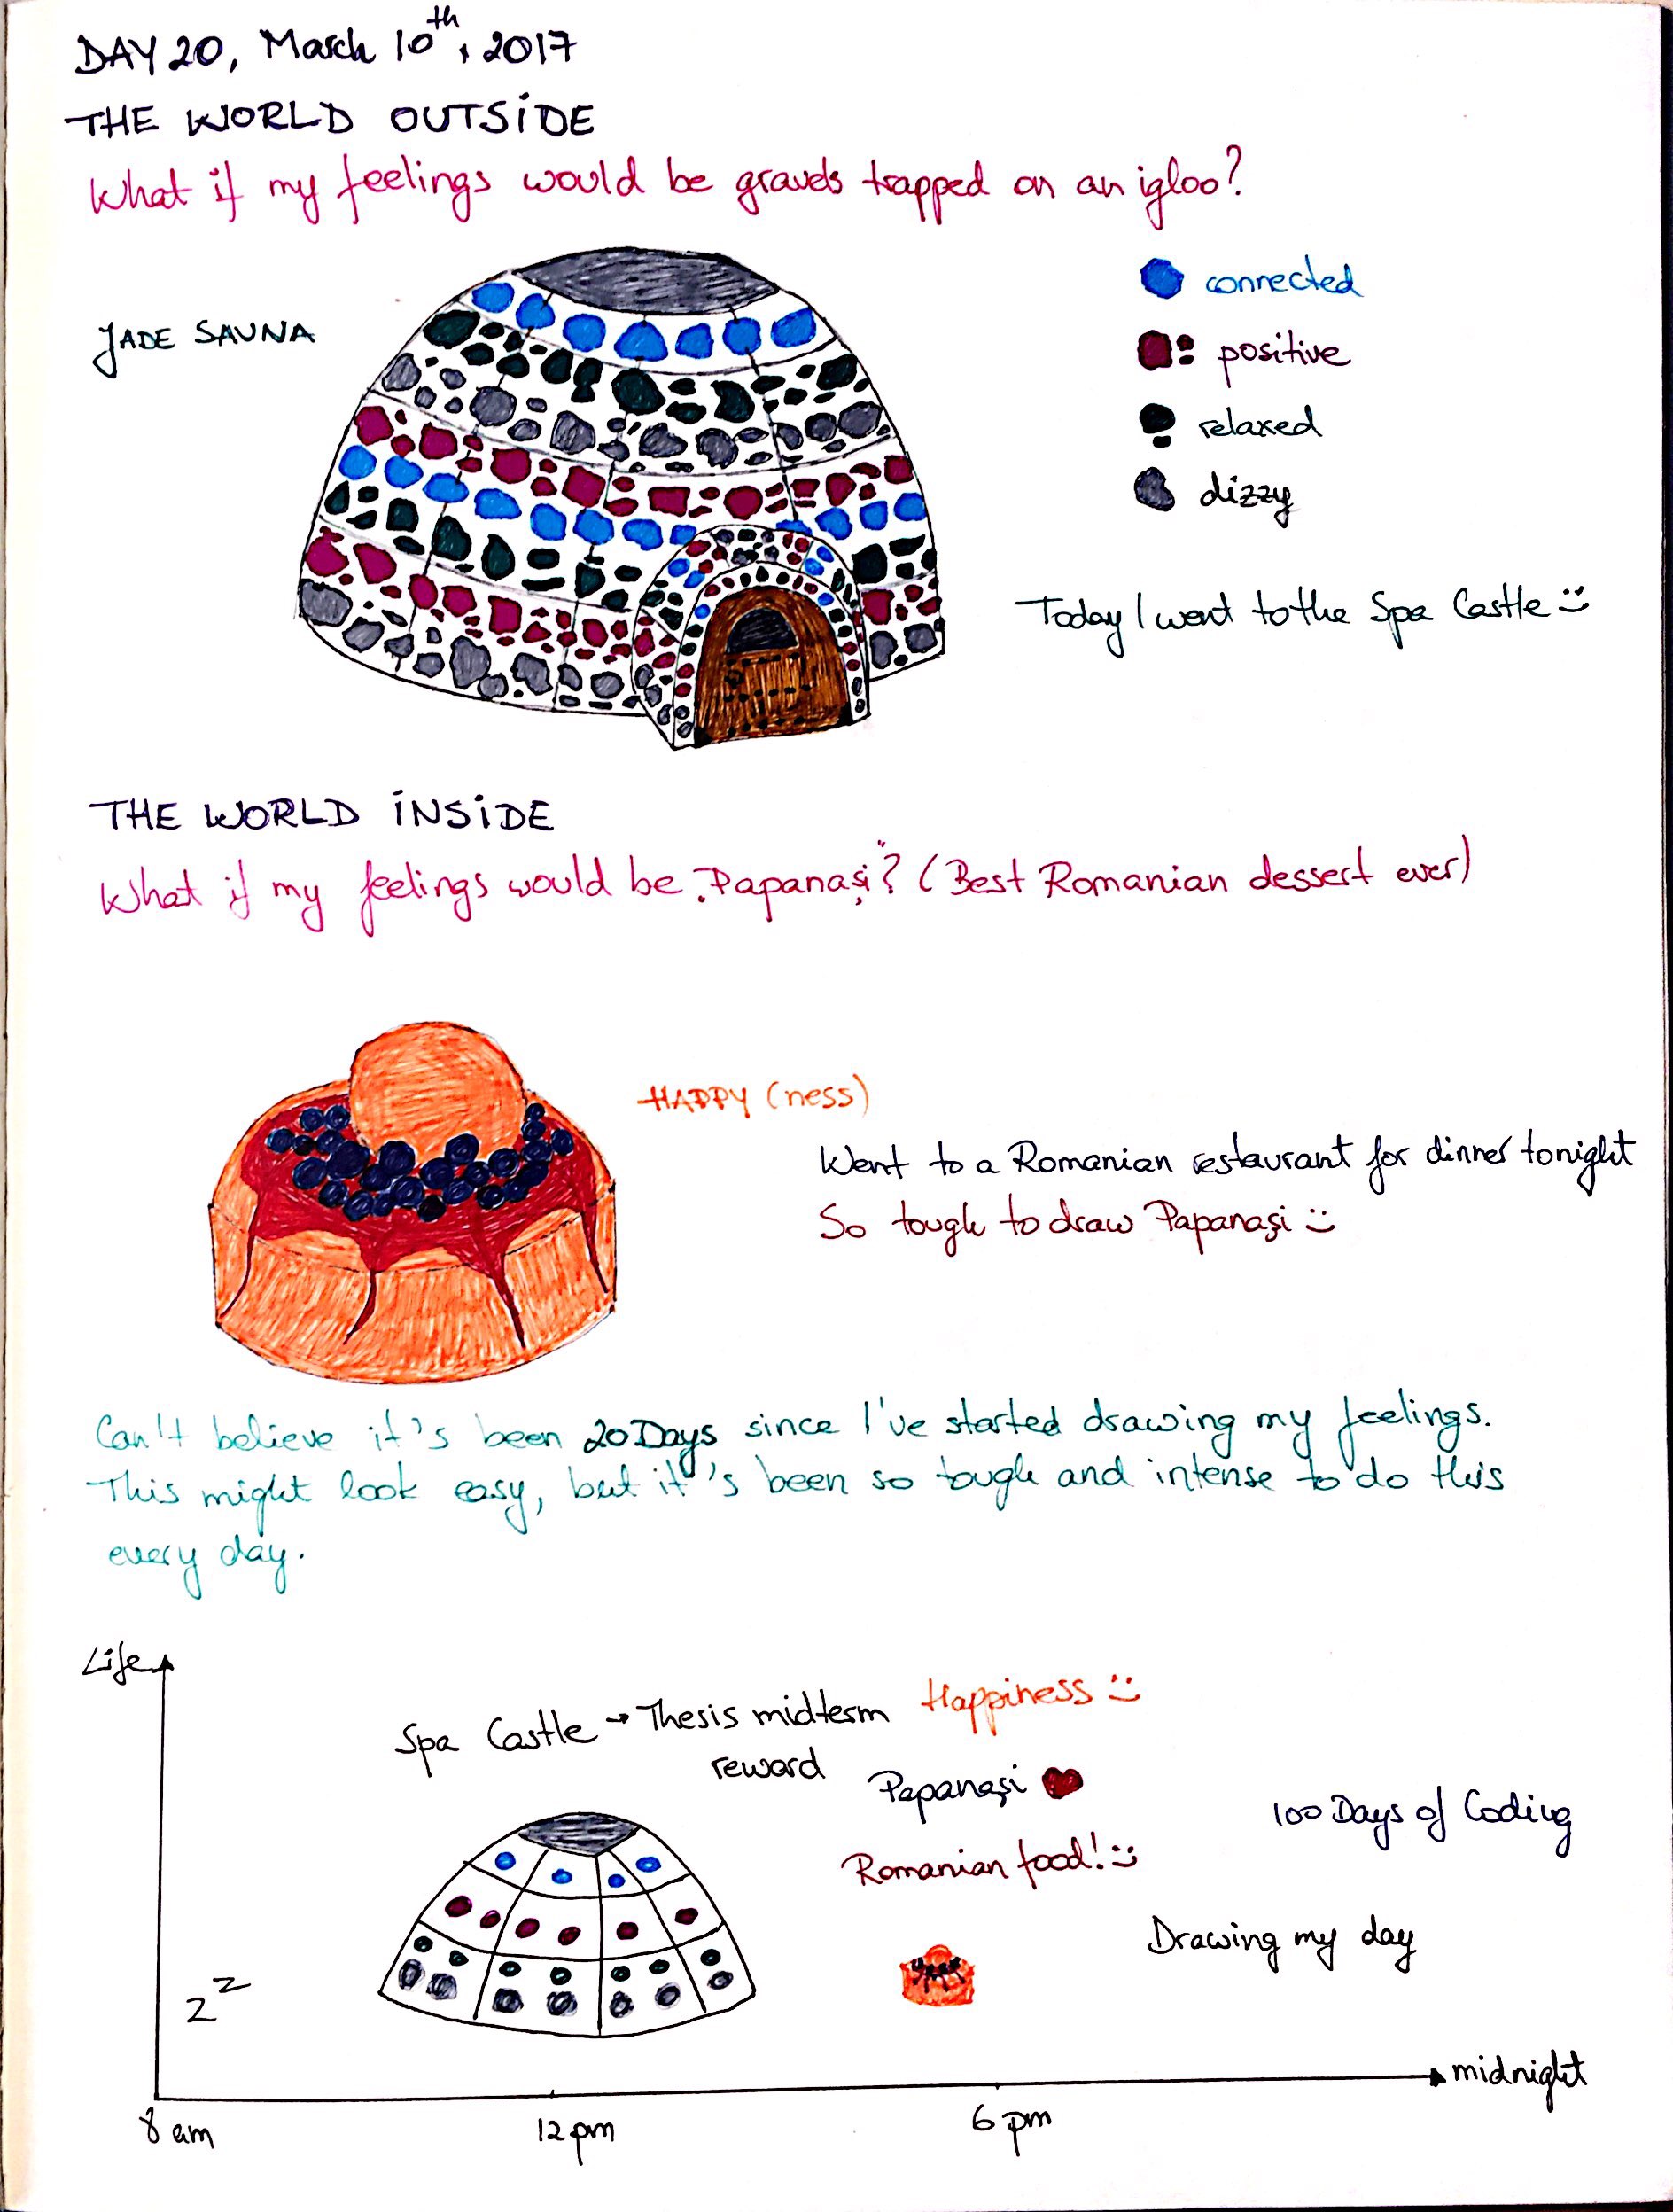 DAY 20, March 10th, 2017
THE WORLD OUTSIDE
What if my feelings would be gravels trapped on an igloo?
JADE SAUNA
connected
positive
relaxed
dizzy
Today I went to the Spa Castle :)
THE WORLD INSIDE
What if my feelings would be „Papanași”? (Best Romanian dessert ever)
HAPPY (ness)
Went to a Romanian restaurant for dinner tonight
So tough to draw Papanași :)
Can't believe it's been 20 Days since I've started drawing my feelings.
This might look easy, but it's been so tough and intense to do this
every day.
Life
Spa Castle → Thesis midterm
reward
Happiness :)
Papanași ♥
Romanian food! :)
100 Days of Coding
Drawing my day
zz
midnight
8 am
12 pm
6 pm